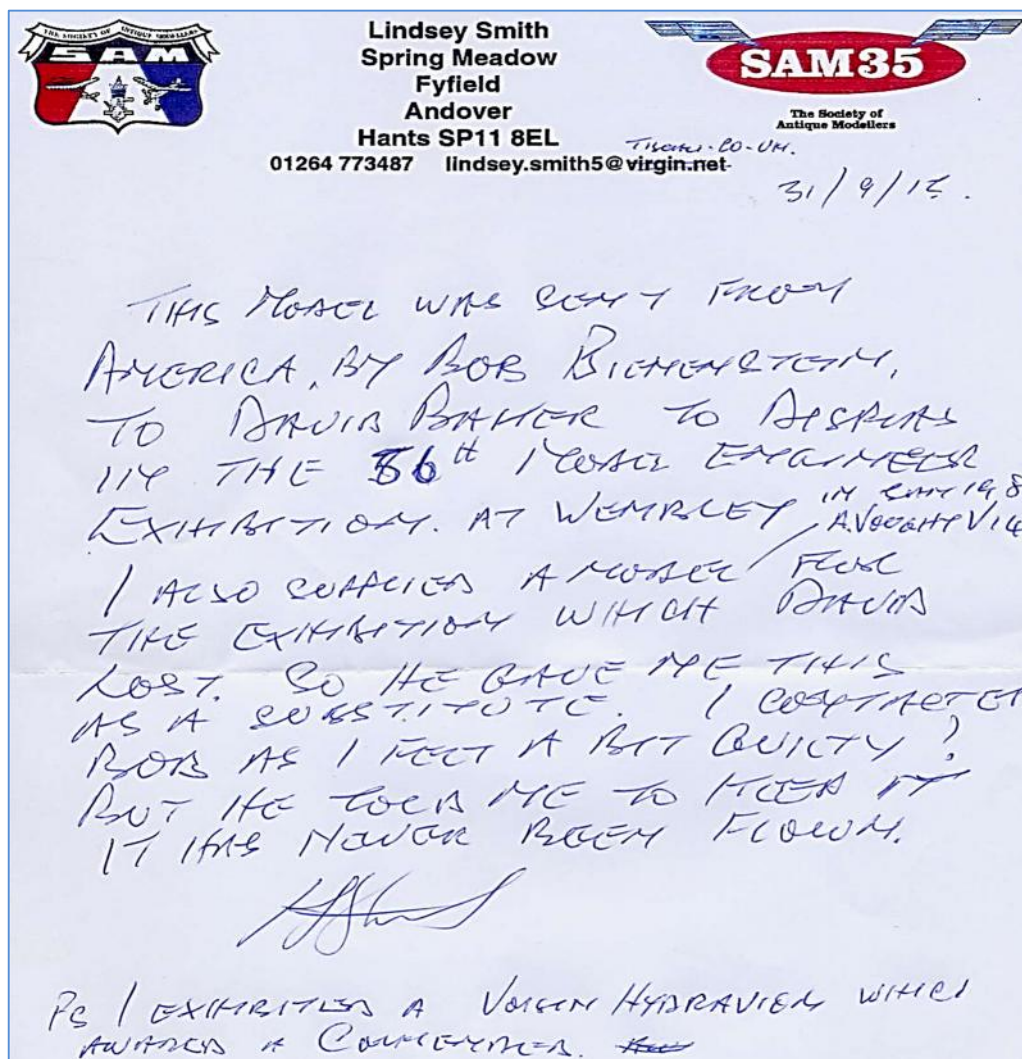 THE SOCIETY OF ANTIQUE MODELLERS
SAM
Lindsey Smith
Spring Meadow
Fyfield
Andover
Hants SP11 8EL
01264 773487 lindsey.smith5@virgin.net
SAM35
The Society of
Antique Modellers
CO-UK.
31/9/15.
THIS MODEL WAS SENT FROM
AMERICA. BY BOB
TO DAVID BAKER TO DISPLAY
IN THE 56th MODEL ENGINEER
EXHIBITION. AT WEMBLEY IN
A. V14
I ALSO SUPPLIED A MODEL FOR
THE EXHIBITION WHICH DAVID
LOST. SO HE GAVE ME THIS
AS A SUBSTITUTE. I CONTACTED
BOB AS I FELT A BIT GUILTY?
BUT HE TOLD ME TO KEEP IT
IT HAS NEVER BEEN FLOWN.
PS I EXHIBITED A VOISIN HYDRAVION WHICH
AWARDED A COMMENDED.